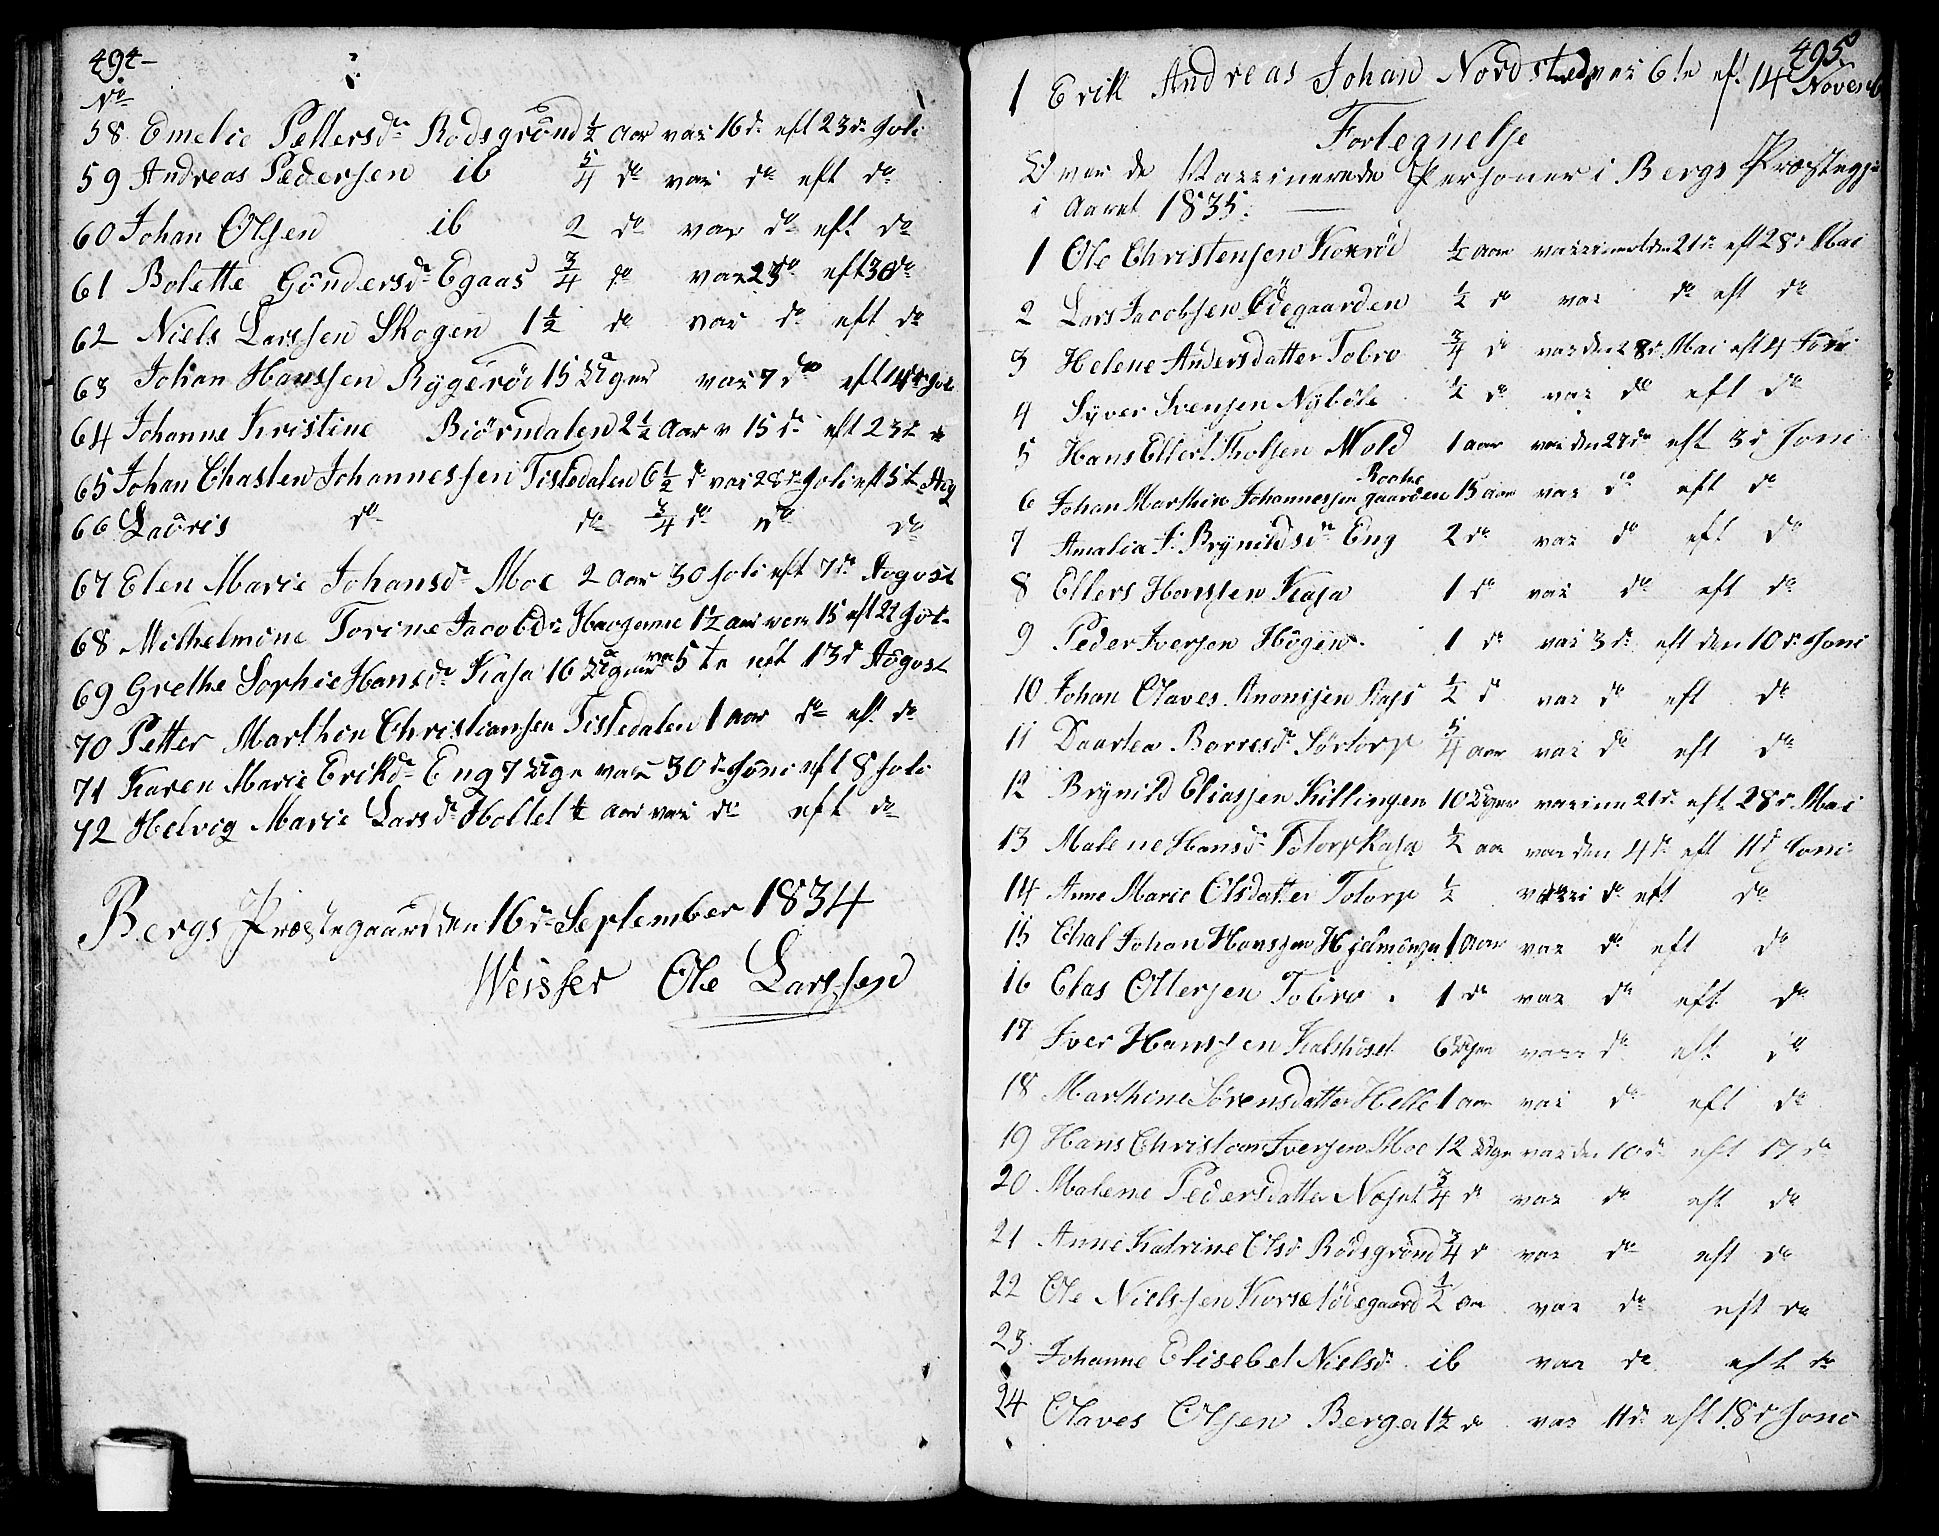 494
No
58 Emelie Pettersdr Rødsgrønd ½ aar vax 16 d. eft 23 d. Joli
59 Andreas Pedersen ib 5/4 do vax do eft do
60 Johan Olssen ib 2 do vax do eft do
61 Bolette Gøndersdr Egaas 3/4 do vax 23 do eft 30 do
62 Niels Larssen Skogen 1½ do vax do eft do
63 Johan Hanssen Rygerød 15 Uger vax 7 do eft 14 d Joli
64 Johanne Kristine Biørndalen 2½ Aar v 15 d. eft 23 d
65 Johan Chasten Johannessen Tistedalen 6½ d vax 28 d Joli eft 5te Aug
66 Lauris do do 3/4 do do do
67 Elen Marie Johansdr Moe 2 aar 30 Joli eft 7 d. Augost
68 Milhelmine Torine Jacobdr Haugerne 1½ aar 15 eft 21 Joli
69 Grethe Sophie Hansdr Kasa 16 Uger vax 5te eft 13 d Augost
70 Petter Marthin Christiansen Tistedalen 1 aar do eft do
71 Karen Marie Erikdr Eng 7 Uge vax 30 d. Joni eft 8 Joli
72 Helvig Marie Larsdr Holtet ½ aar vax do eft do
Bergs Præstegaard den 16 d. September 1834
Weisser Ole Larssen
495
1 Erik Andreas Johan Nordstued vax 6te eft 14 Novemb
Fortegnelse
Over de Vaxinerede Personer i Bergs Præstegje
i Aaret 1835.
1 Ole Christensen Kokrød ½ aar vaxinert den 21 d. eft 28 d. Mai
2 Lars Jacobsen Ødegaarden ½ d vax do eft do
3 Helene Andersdatter Tobro 3/4 d vax den 28 d. Mai eft 4 Joni
4 Syver Svensen Nyböle ½ d vax do eft do
5 Hans Ellert Tholsen Mold 1 aar vax den 27 do eft 3 d Joni
6 Johan Marthin Johannessen Roche gaarden 15 aar vax do eft do
7 Amalia J: Brynildsdr Eng 2 do vax do eft do
8 Ellers Hanssen Kasa 1 do vax do eft do
9 Peder Iversen Högen 1 d vax 3 d. eft den 10 d. Joni
10 Johan Olaves Anonisen ½ d vax do eft do
11 Daartea Borresdr Sørtorp 5/4 aar vax do eft do
12 Brynild Eliassen Killingen 10 Uger vaxinn 21 d. eft 28 d. Mai
13 Malene Hansdr Totorp Kasa ½ aar vax den 4 d. eft 11 d Joni
14 Anne Marie Olsdatter Totorp ½ vaxi do eft do
15 Johan Hanssen 1 aar vax do eft do
16 Elas Ottersen Tobro 1 d vax do eft do
17 Iver Hanssen Kalshuset 6 Uger vax do eft do
18 Marthine Sörensdatter Helle 1 aar vax do eft do
19 Hans Christian Iversen Moe 12 Uge vax den 10 d. eft 17 do
20 Malene Pedersdatter Næset 3/4 d vax do eft do
21 Anne Katrine Olsd Rødsgrønd 3/4 d vax do eft do
22 Ole Nielssen Korsetödegaard ½ aar vax do eft do
23 Johanne Elisebet Nielsd. ib vax do eft do
24 Olaves Olsen Berger 1½ d vax 11 d. eft 18 d Joni